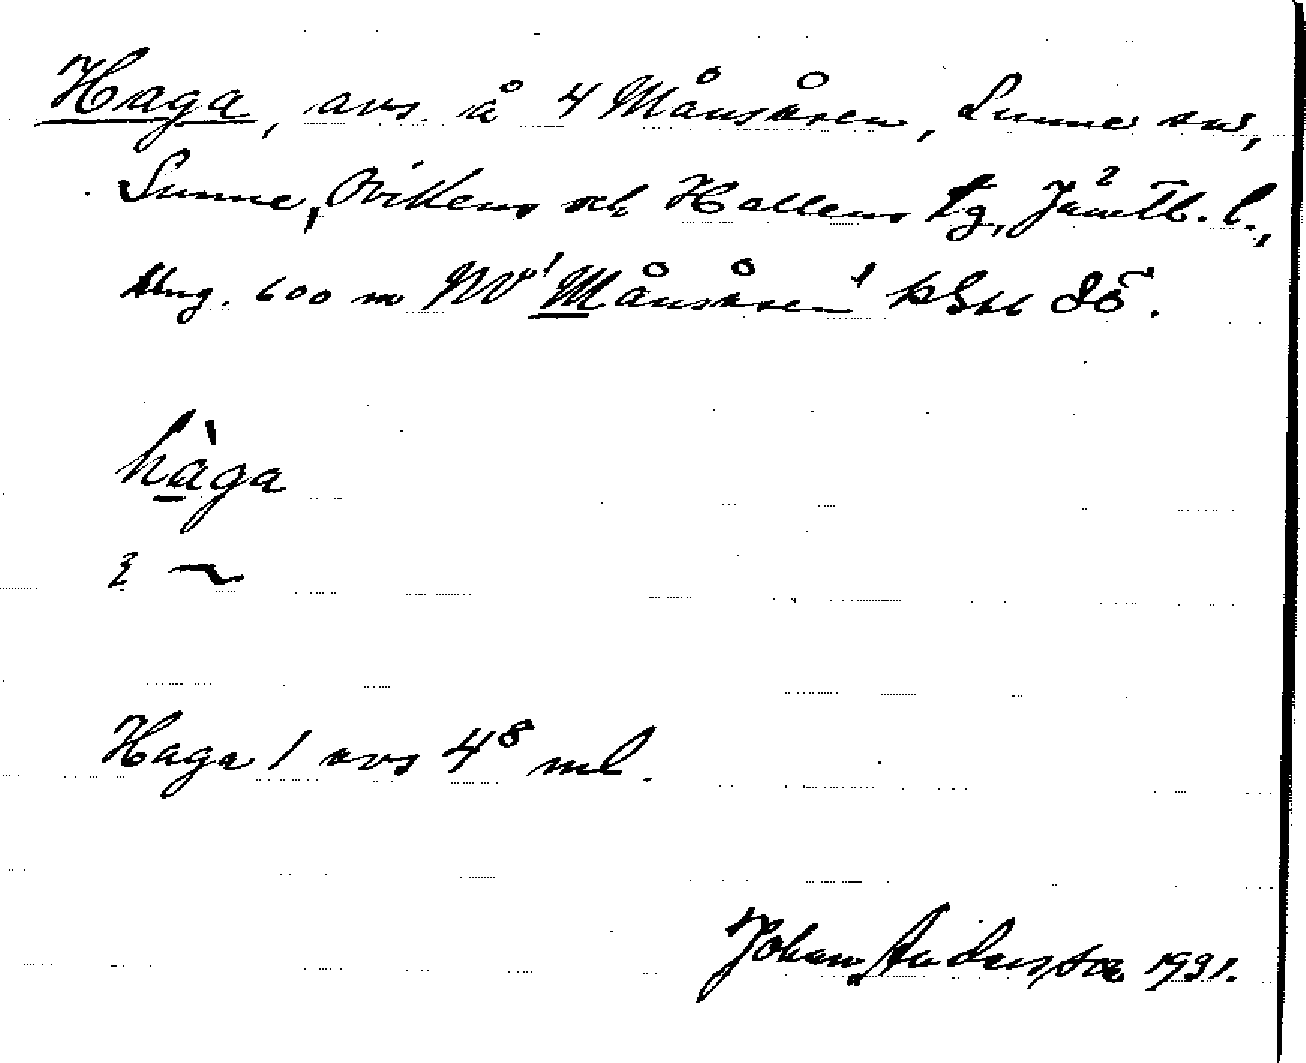 Haga, avs. å 4 Månsåsen, Sunne sn,
Sunne, Ovikens och Hallens tg, Jämtl. l.,
Ung. 600 m NV 'Månsåsen' på
hàga
Haga 1 avs 4⁸ ml.
Johan Andersson 1931.